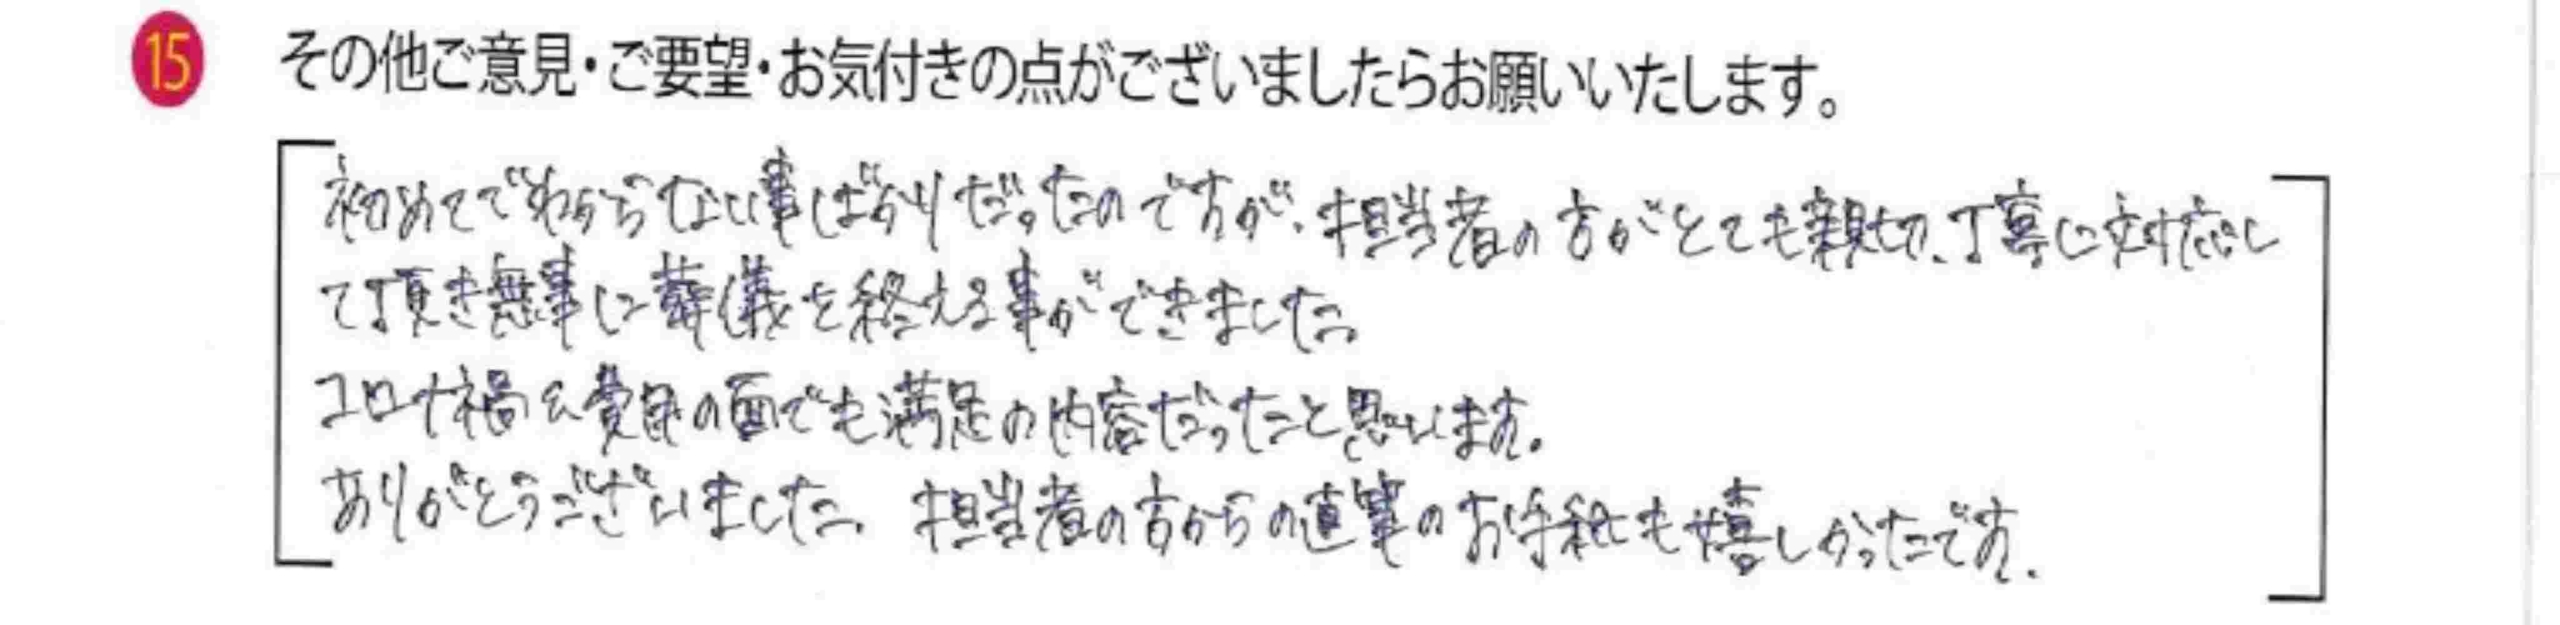 15 その他ご意見・ご要望・お気付きの点がございましたらお願いいたします。
初めてでわからない事ばかりだったのですが、担当者の方がとても親切、丁寧に対応し
て頂き無事に葬儀を終える事ができました。
コロナ禍 費用の面でも満足の内容だったと思います。
ありがとうございました。担当者の方からの直筆のお手紙も嬉しかったです。